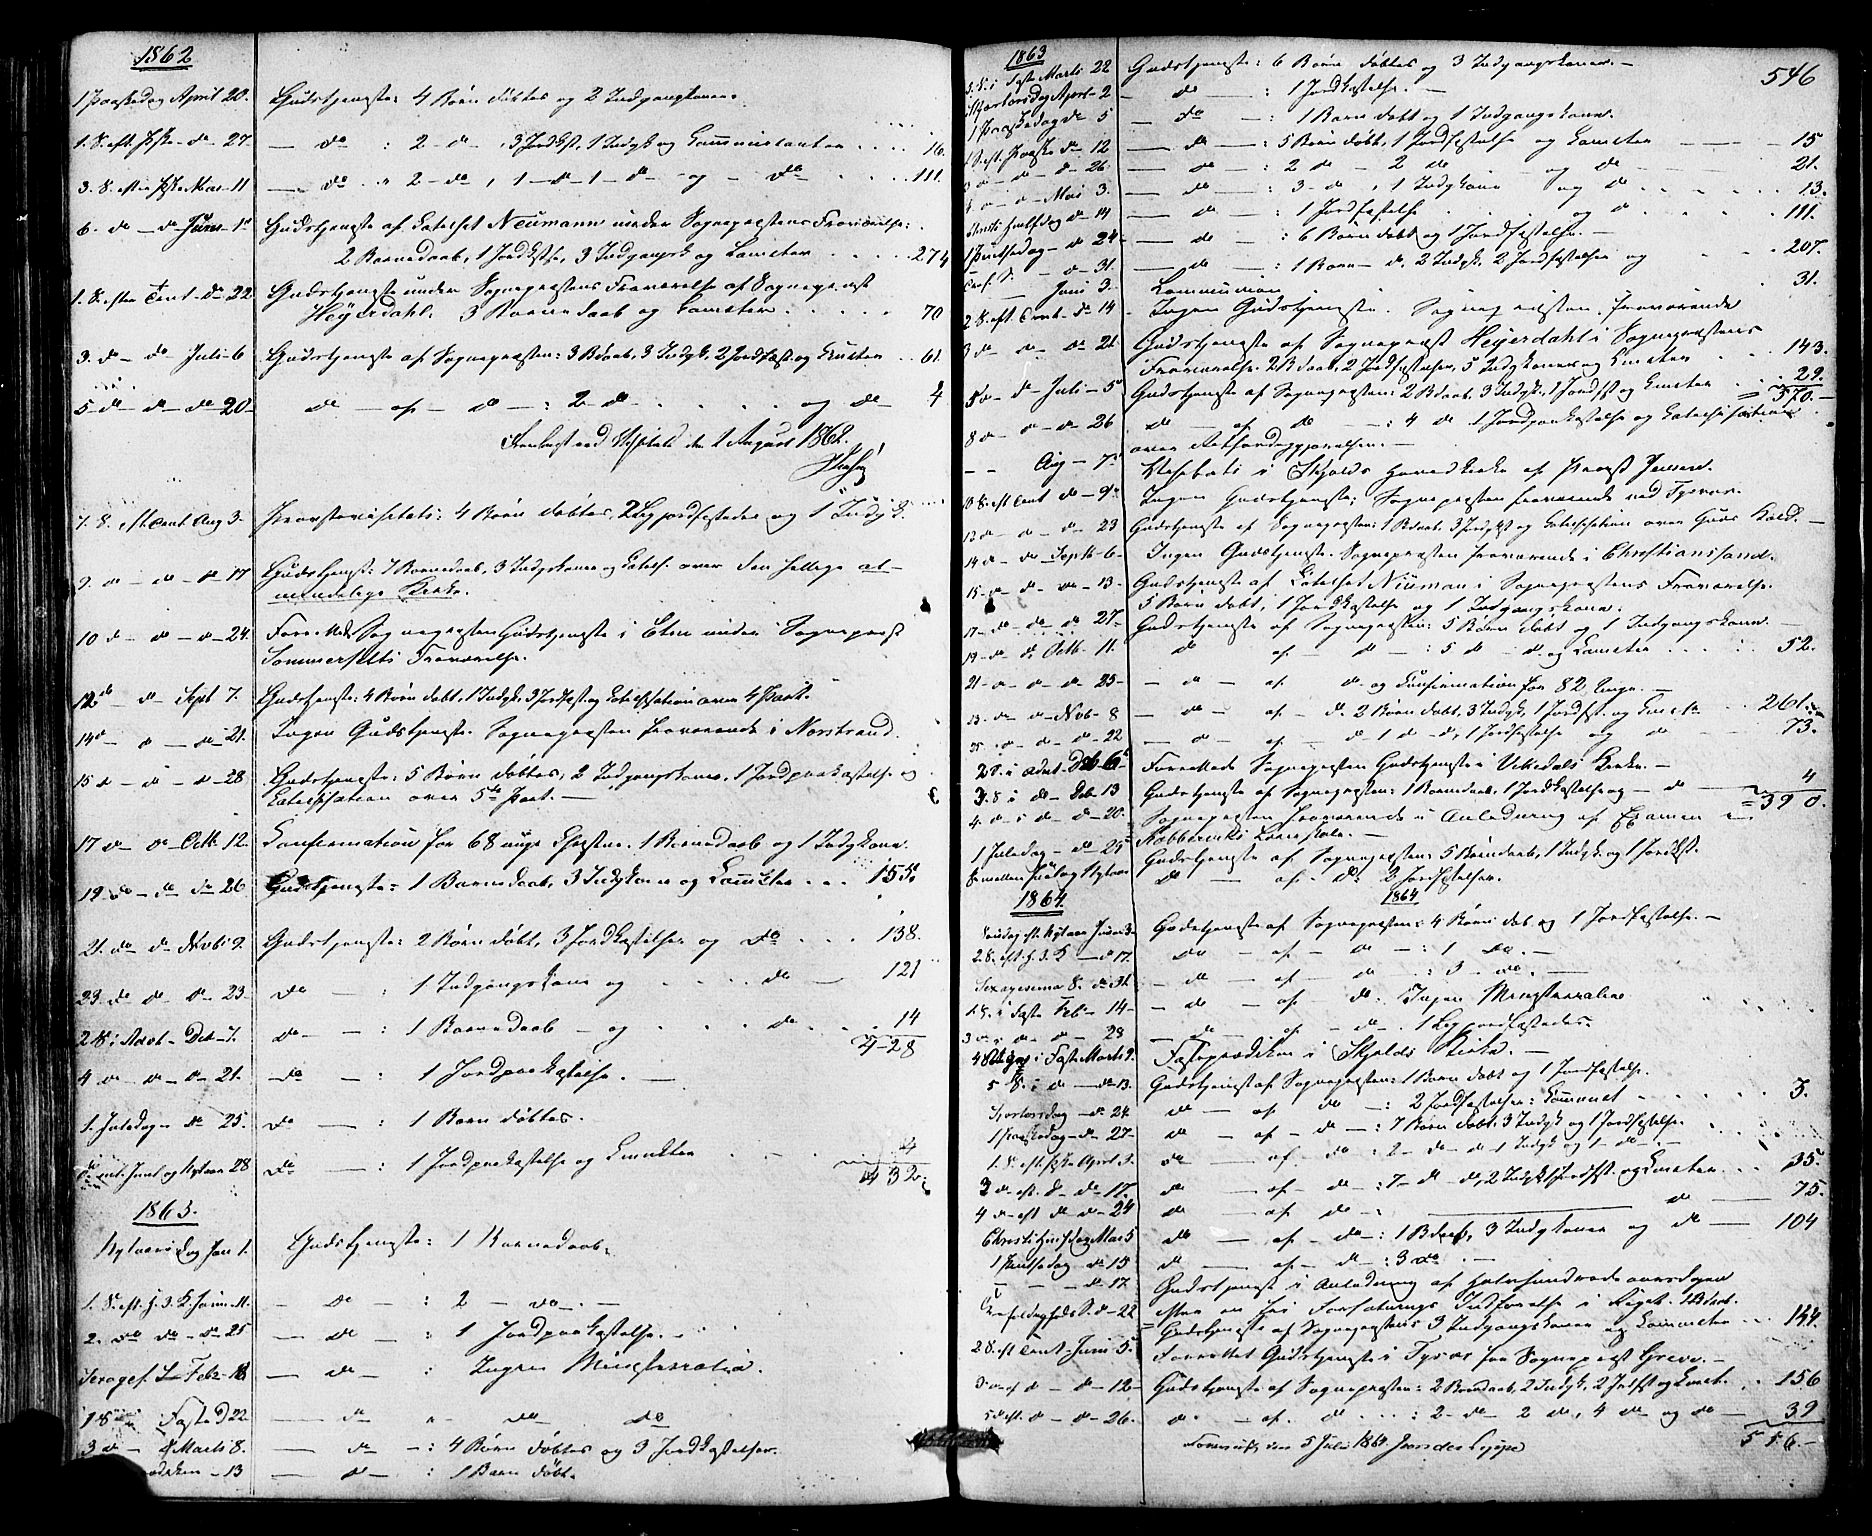 1862
1 Paaskedag April 20. Gudstjeneste: 4 Børn døbtes og 2 Indgangskoner.
1. S. eft. Pske do 27. — do : 2 do, 3 Jordkst, 1 Indgk og Communicanter 16.
3. S. efter Pske Mai 11 — do 2 do, 1 do 1 do og do 111.
6. do do Juni 1st Gudstjeneste af Catechet Neumann under Sognepræstens Fraværelse:
2 Barnedaab, 1 Jordkstse, 3 Indgangsk og Comcter 274
1. S. efter Trint. do 22 Gudstjeneste under Sognepræstens Fraværelse af Sognepræst
Heyerdahl. 3 Barnedaab og Comcter 70
3. do do Juli 6 Gudstjeneste af Sognepræsten: 3 Bdaab, 3 Indgk, 2 Jordfæst og Cmcter 61.
5 do do do 20 do af do : 2 do og do 4
den 1 August 1862.
7. S. eft Trint Aug 3. Provstevisitats: 4 Børn døbtes, 2 Lig jordfæstedes og 1 Indgk.
9. do do do 17 Gudstjenst: 7 Barnedaab, 3 Indgskoner og Catech. over den hellige al-
mindelige Kirke.
10 do do do 24. Forrettede Sognepræsten Gudstjeneste i Etne under Sognepræst
Sommerfelts Fraværelse.
12 do do Sept 7. Gudstjenste: 4 Børn døbt, 1 Indgk, 3 Jordfæst og Catechisation over 4 Part.
14 do do do 21. Ingen Gudstjeneste. Sognepræsten fraværende i Norstrand.
15 do do do 28 Gudstjeneste: 5 Børn døbtes, 2 Indgangskoner, 1 Jordpaakastelse og
Catechisation over 5te Part. —
17 do do Octb. 12. Confirmation for 68 unge Christne. 1 Barnedaab og 1 Indgkone.
19 do do do 26 Gudstjeneste: 1 Barnedaab, 3 Indgkoner og Comcter 155.
21. do do Novb 9. Gudstjeneste: 2 Børn døbt, 3 Jordkastelser og do 138.
23. do do do 23. do — : 1 Indgangskone og do 121
2 S i Advt Dec 7. do — : 1 Barnedaab og do 14
428
4 do do do 21. do — : 1 Jordpaakastelse. —
1. Juledag do 25. do — : 1 Barn døbtes.
ml. Juul og Nytaar 28 do — : 1 Jordpaakastelse og Cmcter 4
432.
1863.
Nytaarsdag Jan 1. Gudstjeneste: 1 Barnedaab.
1. S. eft. H. 3. K. Janu 11. do : 2 do. —
2. do do do 25 do : 1 Jordpaakastelse.
Sexages. S. Febr do : Ingen Ministerialia.
1 S Faste d 22 do do do
3 do Marts 8. do : 4 Børn døbtes og 3 Jordkastelser.
13 do : 1 Barn døbt.
546
1863
S. i Faste Marts 22 Gudstjeneste: 6 Børn døbtes og 3 Indgangskoner. —
Skjærtorsdag April 2 do : 1 Jordkastelse. —
1 Paaskedag do 5 do : 1 Barn døbt og 1 Indgangskone.
1 S. eft. Paaske do 12 do : 5 Børn døbt, 1 Jordfæstelse og Comcter 15
3 do do do 26. do : 2 do 2 do og do 21.
do Mai 3. do : 3 do, 1 Indgkone og do 13.
Christi Hmlfdag do 14 do : 1 Jordfæstelse og do 111.
1 Pintsedag do 24 do : 6 Børn døbt og 1 Jordfæstelse. —
Tref. S. do 31. do : 1 Barn do, 2 Indgk, 2 Jordfæstelser og 207.
Juni 3. Communion 31.
2 S. eft. Trint do 14 Ingen Gudstjeneste. Sognepræsten fraværende
3 do do do 21. Gudstjeneste af Sognepræst Heyerdahl i Sognepræstens
Fraværelse. 2 Bdaab, 2 Jordfæstelser, 5 Indgkoner og Cmcter 143.
5 do do Juli 5 Gudstjeneste af Sognepræsten: 2 Bdaab, 3 Indgk, 1 Jordfst og Cmcter 29.
570.
8 do do 26 do af do : 4 do 1 Jordpaakastelse og Catechisation
over Retfærdiggjørelsen. —
Aug 7 i Skjolds Hovedkirke af Provst Jensen.
10 S. eft Trint do 9 Ingen Gudstjeneste; Sognepræsten fraværende ved Tysvær.
12 do do do 23 Gudstjeneste af Sognepræsten: 1 Bdaab, 3 Indgk og Catechisation over Guds
14 do do Septb 6 Ingen Gudstjeneste. Sognepræsten fraværende i Christianssand.
15 do do do 13. Gudstjeneste af Catechet Neuman i Sognepræstens Fraværelse.
5 Børn døbt, 1 Jordkastelse og 1 Indgangskone.
17 do do do 27. Gudstjeneste af Sognepræsten: 5 Børn døbt og 1 Indgangskone. —
19 do do Octb. 11. do af do : 5 do og Comcter 52.
21 do do do 25 do af do og Confirmation for 82 Unge. —
23. do do Novb 8 do af do. 2 Børn døbt, 3 Indgk, 1 Jordfst. og Cmcter 261.
25. do do do 22 do af do 1 do, 1 Jordfæstelse og do 73.
2 S. i Advt. Decb 6 Forrettede Sognepræsten Gudstjeneste i Vikedals Kirke. —
3. S i do Decb 13 Gudstjeneste af Sognepræsten: 1 Barnedaab, 1 Jordkastelse og do 4
390.
4. do i do do 20. Sognepræsten fraværende i Anledning af Examen
1 Juledag do 25 Gudstjeneste af Sognepræsten: 5 Børndaab, 1 Indgk. og 1 Jordkst.
S. mellem Juul og Nytaar do af. do: 2 Jordfæstelser.
1864. 1864
Søndag eft. Nytaar Januar 3 Gudstjeneste af Sognepræsten: 4 Børn døb. og 1 Jordfæstelse. —
2. S. eft. H. 3. K do 17. do af do : 1 do. —
Sexagesima S. do 31. do af do : 3 do. —
1 S. i Faste Feb 14 do af do : Ingen Ministerialia
3 do do 28 do af do. 1 Lig jordfæstedes.
i Faste Marts 9. Fasteprædiken i Skjolds Kirke. —
5 S. i do do 13. Gudstjenst af Sognepræsten: 1 Barn døbt og 1 Jordfæstelse.
Skjærtorsdag do 24. do af do : 2 Jordfæstelser: Communct 3.
1 Paaskedag do 27 do af do : 7 Børn døbt, 3 Indgk og 1 Jordfæstelse.
1. S. eft. Pske April 3. do af do : 2 do 1 Indgk og 1 do
2 do eft. do do 17. do af do : 7 do do, 2 Indgk, 1 Jordfst. og Cmcter 35.
4 do eft do do 24 do af do : do 75.
Christi Himfdag Mai 5 do af do : 1 Bdaab, 3 Indgkoner og do 104
1 Pintsedag do 15 do af do : 3 do —
do 17. Gudstjenst i Anledning af Halvhundredaarsdagen
Forfatnings Indførelse i Riget. 1 Bdøbt.
Trefoldigheds S. do 22 Gudstjeneste af Sognepræsten 3 Indgangskoner og Comcter 144.
2 S. eft Trint Juni 5. Forrettet Gudstjeneste i Tysvær for Sognepræst Greve. —
3 do eft do do 12 Gudstjeneste af Sognepræsten: 2 Børndaab, 2 Indgk, 2 Jrdfst og Cmct. 156
5 do eft. do do 26. do af do : 2 do 2 do, 4 do og do 39
556. —
den 5 Juli 1864